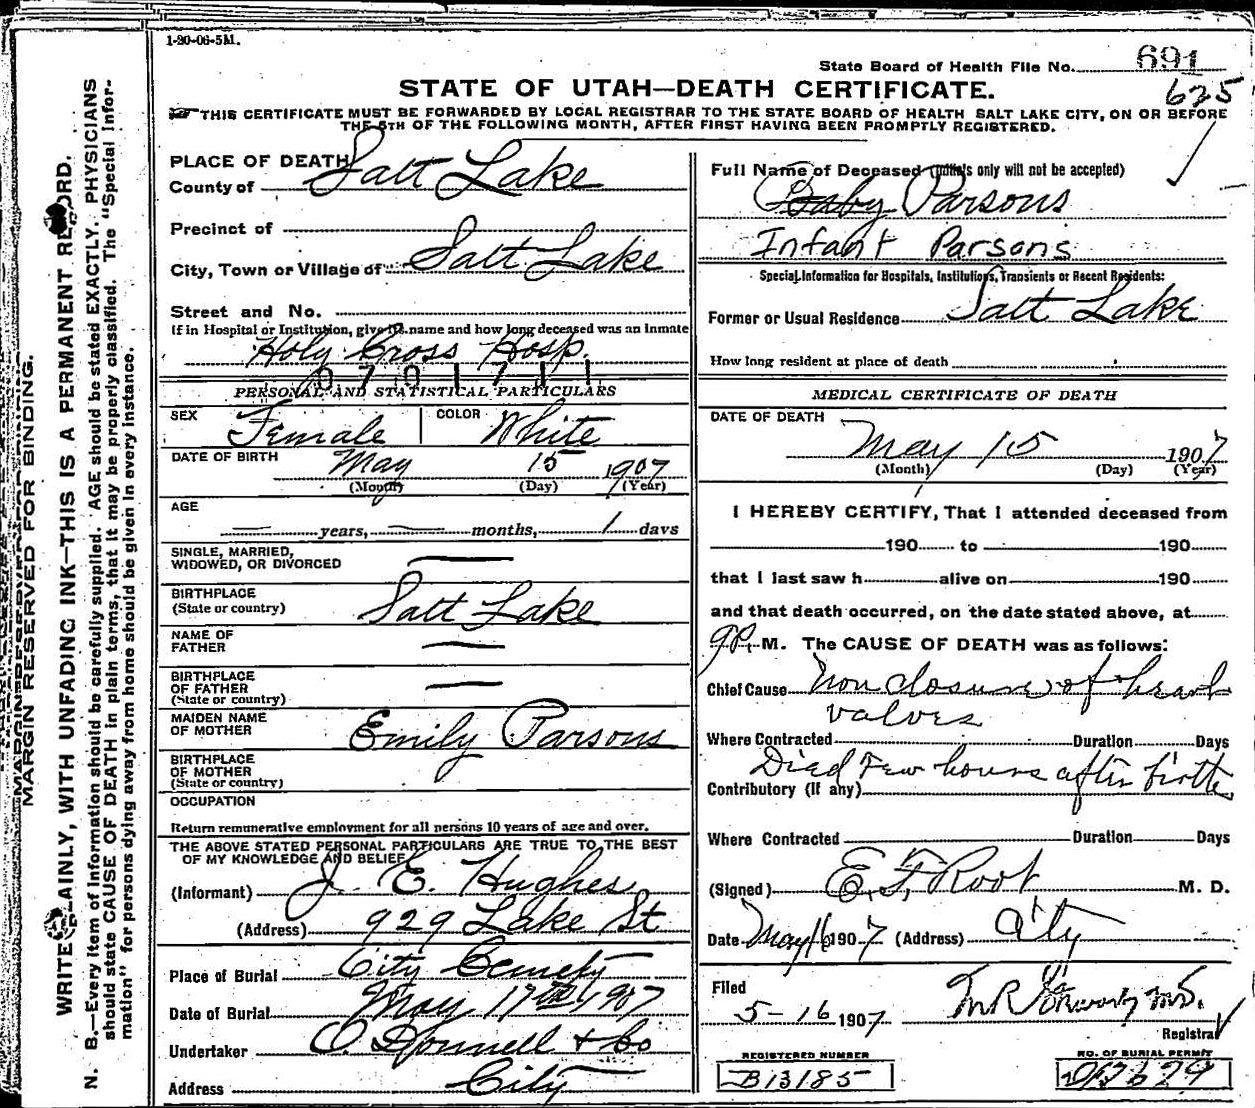 1-20-06-5M.
State Board of Health File No. 691
STATE OF UTAH—DEATH CERTIFICATE.
625
THIS CERTIFICATE MUST BE FORWARDED BY LOCAL REGISTRAR TO THE STATE BOARD OF HEALTH SALT LAKE CITY, ON OR BEFORE
THE 5TH OF THE FOLLOWING MONTH, AFTER FIRST HAVING BEEN PROMPTLY REGISTERED.
MARGIN RESERVED FOR BINDING.
WRITE PLAINLY, WITH UNFADING INK—THIS IS A PERMANENT RECORD.
N. B.—Every item of information should be carefully supplied. AGE should be stated EXACTLY. PHYSICIANS
should state CAUSE OF DEATH in plain terms, that it may be properly classified. The "Special Infor-
mation" for persons dying away from home should be given in every instance.
PLACE OF DEATH
County of Salt Lake
Precinct of
City, Town or Village of Salt Lake
Street and No.
If in Hospital or Institution, give its name and how long deceased was an Inmate
Holy Cross Hosp.
PERSONAL AND STATISTICAL PARTICULARS
SEX Female COLOR White
DATE OF BIRTH May 15 1907
(Month) (Day) (Year)
AGE
years, months, 1 days
SINGLE, MARRIED,
WIDOWED, OR DIVORCED
BIRTHPLACE
(State or country) Salt Lake
NAME OF
FATHER
BIRTHPLACE
OF FATHER
(State or country)
MAIDEN NAME
OF MOTHER Emily Parsons
BIRTHPLACE
OF MOTHER
(State or country)
OCCUPATION
Return remunerative employment for all persons 10 years of age and over.
THE ABOVE STATED PERSONAL PARTICULARS ARE TRUE TO THE BEST
OF MY KNOWLEDGE AND BELIEF
(Informant) J. E. Hughes
(Address) 929 Lake St
Place of Burial City Cemety
Date of Burial May 17th 1907
Undertaker O. Donnell & Co
Address City
Full Name of Deceased (Initials only will not be accepted)
Baby Parsons
Infant Parsons
Special Information for Hospitals, Institutions, Transients or Recent Residents:
Former or Usual Residence Salt Lake
How long resident at place of death
MEDICAL CERTIFICATE OF DEATH
DATE OF DEATH
May 15 1907
(Month) (Day) (Year)
I HEREBY CERTIFY, That I attended deceased from
190 to 190
that I last saw h alive on 190
and that death occurred, on the date stated above, at
9 P. M. The CAUSE OF DEATH was as follows:
Chief Cause Non closure of heart
valves
Where Contracted Duration Days
Died Few hours after birth
Contributory (If any)
Where Contracted Duration Days
(Signed) E. F. Root M. D.
Date May 16 1907 (Address) City
Filed
5-16 1907
Registrar
REGISTERED NUMBER
B13185
NO. OF BURIAL PERMIT